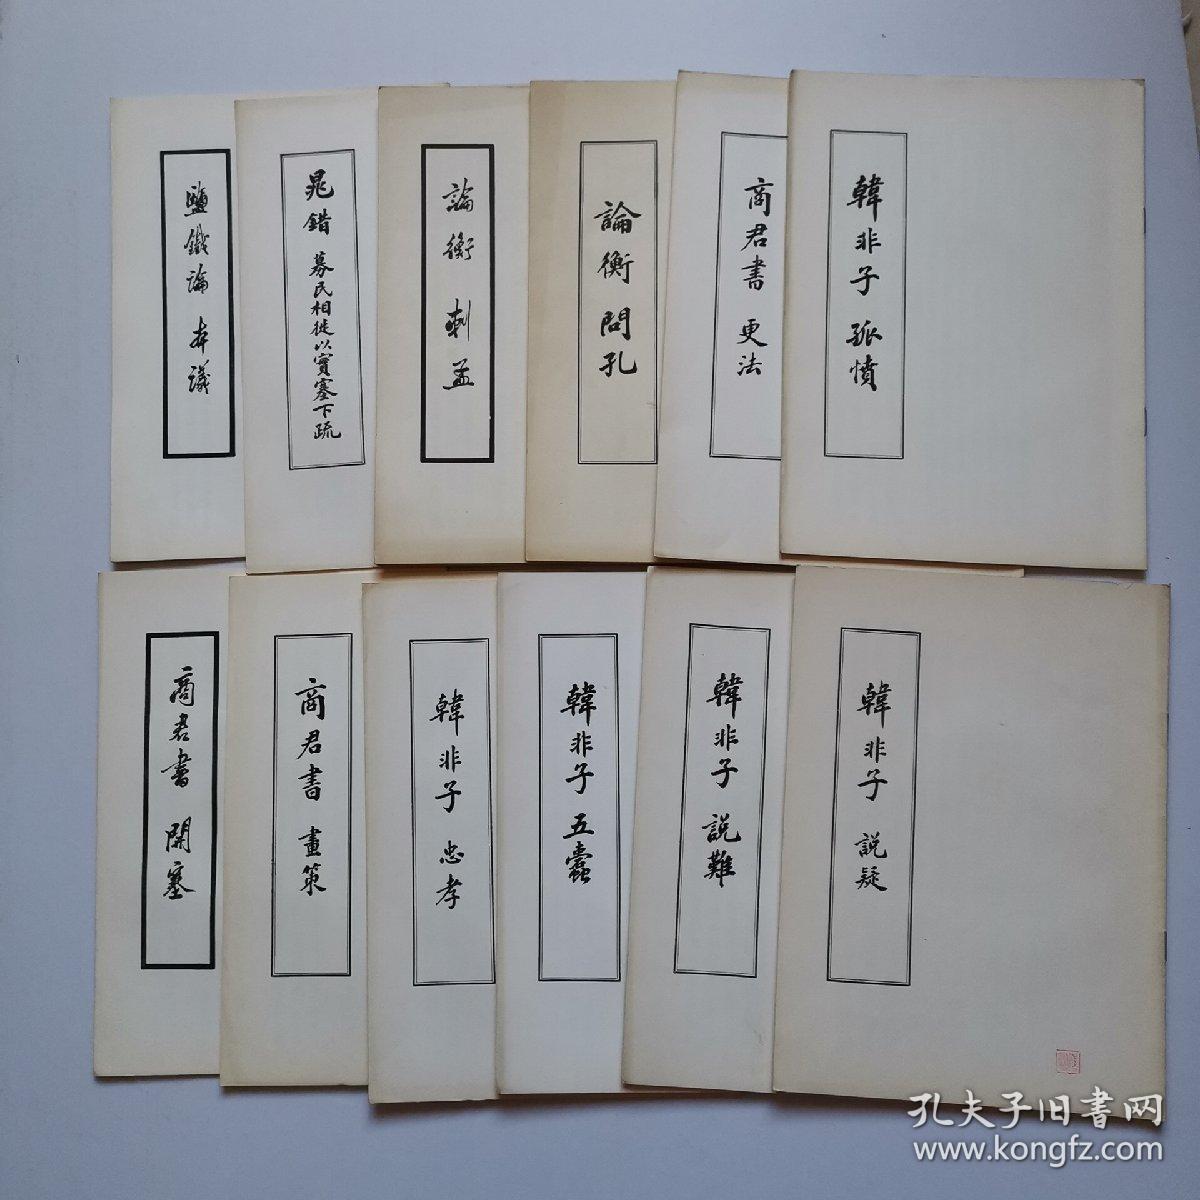 鹽鐵論 本議
晁錯 募民相徙以實塞下疏
論衡 刺孟
論衡 問孔
商君書 更法
韓非子 孤憤
商君書 開塞
商君書 畫策
韓非子 忠孝
韓非子 五蠹
韓非子 説難
韓非子 説疑
孔夫子旧書网
www.kongfz.com